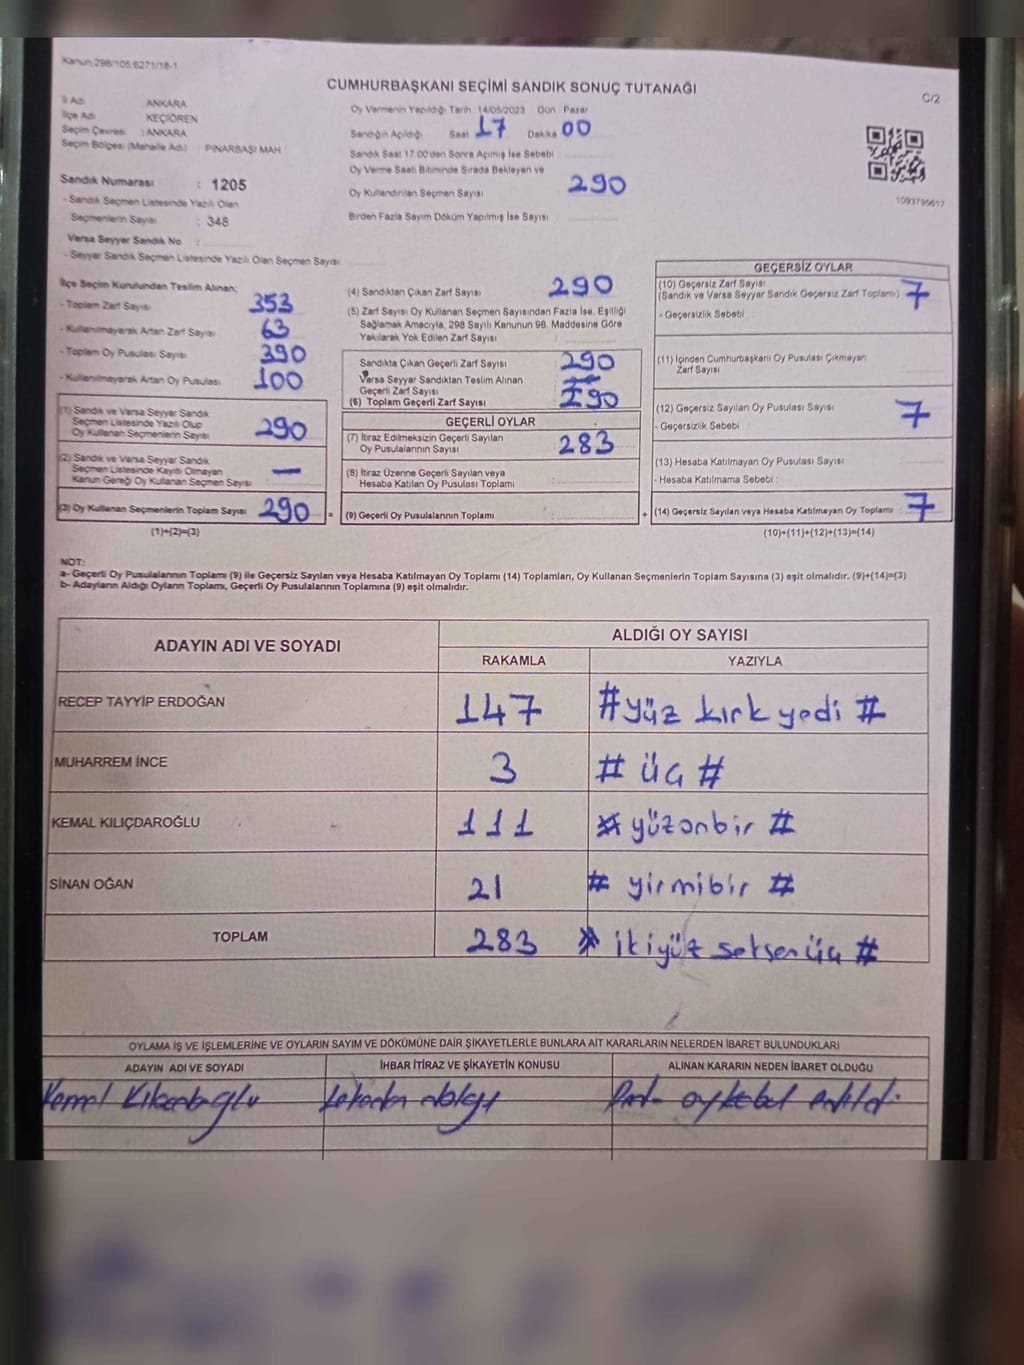 Kanun,298/105,6271/18-1
CUMHURBAŞKANI SEÇİMİ SANDIK SONUÇ TUTANAĞI
C/2
İl Adı ANKARA
İlçe Adı KEÇİÖREN
Seçim Çevresi : ANKARA
Seçim Bölgesi (Mahalle Adı) : PINARBAŞI MAH
Sandık Numarası : 1205
- Sandık Seçmen Listesinde Yazılı Olan
Seçmenlerin Sayısı : 348
Varsa Seyyar Sandık No :
- Seyyar Sandık Seçmen Listesinde Yazılı Olan Seçmen Sayısı
Oy Vermenin Yapıldığı Tarih 14/05/2023 Gün Pazar
Sandığın Açıldığı Saat 17 Dakika 00
Sandık Saat 17:00'den Sonra Açımış İse Sebebi
Oy Verme Saati Bitiminde Sırada Bekleyen ve
Oy Kullandırılan Seçmen Sayısı 290
Birden Fazla Sayım Döküm Yapılmış İse Sayısı
1093795617
İlçe Seçim Kurulundan Teslim Alınan;
- Toplam Zarf Sayısı 353
- Kullanılmayarak Artan Zarf Sayısı 63
- Toplam Oy Pusulası Sayısı 390
- Kullanılmayarak Artan Oy Pusulası 100
(1) Sandık ve Varsa Seyyar Sandık
Seçmen Listesinde Yazılı Olup
Oy Kullanan Seçmenlerin Sayısı 290
(2) Sandık ve Varsa Seyyar Sandık
Seçmen Listesinde Kayıtlı Olmayan
Kanun Gereği Oy Kullanan Seçmen Sayısı —
(3) Oy Kullanan Seçmenlerin Toplam Sayısı 290 =
(1)+(2)=(3)
(4) Sandıktan Çıkan Zarf Sayısı 290
(5) Zarf Sayısı Oy Kullanan Seçmen Sayısından Fazla İse, Eşitliği
Sağlamak Amacıyla, 298 Sayılı Kanunun 98. Maddesine Göre
Yakılarak Yok Edilen Zarf Sayısı
Sandıkta Çıkan Geçerli Zarf Sayısı 290
Varsa Seyyar Sandıktan Teslim Alınan
Geçerli Zarf Sayısı
(6) Toplam Geçerli Zarf Sayısı 290
GEÇERLİ OYLAR
(7) İtiraz Edilmeksizin Geçerli Sayılan
Oy Pusulalarının Sayısı 283
(8) İtiraz Üzerine Geçerli Sayılan veya
Hesaba Katılan Oy Pusulası Toplamı
(9) Geçerli Oy Pusulalarının Toplamı +
GEÇERSİZ OYLAR
(10) Geçersiz Zarf Sayısı
(Sandık ve Varsa Seyyar Sandık Geçersiz Zarf Toplamı) 7
- Geçersizlik Sebebi
(11) İçinden Cumhurbaşkanı Oy Pusulası Çıkmayan
Zarf Sayısı
(12) Geçersiz Sayılan Oy Pusulası Sayısı 7
- Geçersizlik Sebebi
(13) Hesaba Katılmayan Oy Pusulası Sayısı
- Hesaba Katılmama Sebebi
(14) Geçersiz Sayılan veya Hesaba Katılmayan Oy Toplamı 7
(10)+(11)+(12)+(13)=(14)
NOT:
a- Geçerli Oy Pusulalarının Toplamı (9) ile Geçersiz Sayılan veya Hesaba Katılmayan Oy Toplamı (14) Toplamları, Oy Kullanan Seçmenlerin Toplam Sayısına (3) eşit olmalıdır. (9)+(14)=(3)
b- Adayların Aldığı Oyların Toplamı, Geçerli Oy Pusulalarının Toplamına (9) eşit olmalıdır.
ADAYIN ADI VE SOYADI
ALDIĞI OY SAYISI
RAKAMLA YAZIYLA
RECEP TAYYİP ERDOĞAN 147 #yüz kırk yedi #
MUHARREM İNCE 3 # üç #
KEMAL KILIÇDAROĞLU 111 # yüzonbir #
SİNAN OĞAN 21 # yirmibir #
TOPLAM 283 # ikiyüz seksenüç #
OYLAMA İŞ VE İŞLEMLERİNE VE OYLARIN SAYIM VE DÖKÜMÜNE DAİR ŞİKAYETLERLE BUNLARA AİT KARARLARIN NELERDEN İBARET BULUNDUKLARI
ADAYIN ADI VE SOYADI İHBAR İTİRAZ VE ŞİKAYETİN KONUSU ALINAN KARARIN NEDEN İBARET OLDUĞU
Kemal